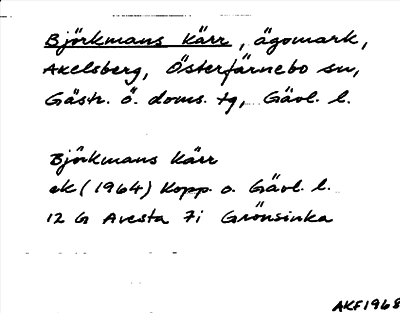 Björkmans Kärr, ägomark,
Axelsberg, Österfärnebo sn,
Gästr. ö. doms. tg, Gävl. l.
Björkmans Kärr
ek (1964) Kopp. o. Gävl. l.
12 G Avesta 7i Grönsinka
AKF1968